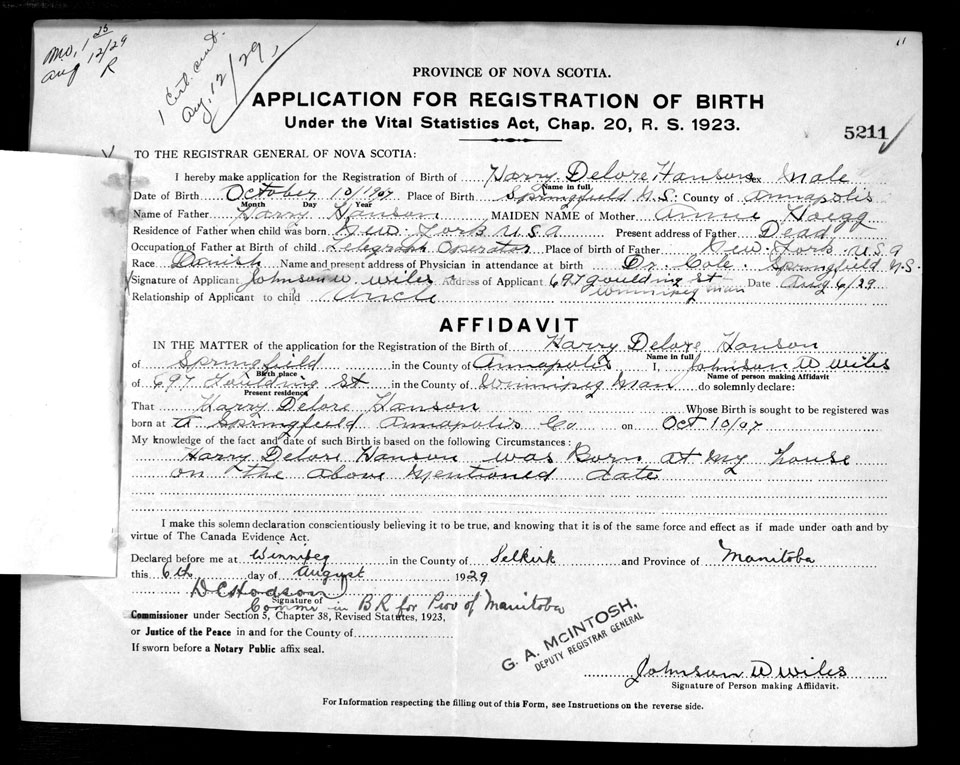 Mo, 1 25
Aug 12/29
R
1 Cert. out.
Aug, 12/29,
11
PROVINCE OF NOVA SCOTIA.
APPLICATION FOR REGISTRATION OF BIRTH
Under the Vital Statistics Act, Chap. 20, R. S. 1923.
5211
TO THE REGISTRAR GENERAL OF NOVA SCOTIA:
I hereby make application for the Registration of Birth of Harry Delore Hanson Sex Male
Name in full
Date of Birth October 10/1907 Place of Birth Springfield N.S: County of Annapolis
Month Day Year
Name of Father Harry Hanson MAIDEN NAME of Mother Annie Hoegg
Residence of Father when child was born New York U S A Present address of Father Dead
Occupation of Father at Birth of child Telegraph Operator Place of birth of Father New York U.S.A
Race Danish Name and present address of Physician in attendance at birth Dr. Cole. Springfield N.S.
Signature of Applicant Johnson W Wiles Address of Applicant 697 Goulding St Winnipeg Man Date Aug 6/29
Relationship of Applicant to child Uncle
AFFIDAVIT
IN THE MATTER of the application for the Registration of the Birth of Harry Delore Hanson
Name in full
of Springfield in the County of Annapolis I, Johnson W Wiles
Birth place Name of person making Affidavit
of 697 Goulding St in the County of Winnipeg Man do solemnly declare:
Present residence
That Harry Delore Hanson Whose Birth is sought to be registered was
born at Springfield Annapolis Co on Oct 10/07
My knowledge of the fact and date of such Birth is based on the following Circumstances:
Harry Delore Hanson was Born at My house
on the above Mentioned date
I make this solemn declaration conscientiously believing it to be true, and knowing that it is of the same force and effect as if made under oath and by
virtue of The Canada Evidence Act.
Declared before me at Winnipeg in the County of Selkirk and Province of Manitoba
this 6th day of August 1929
D C Hodson
Signature of
Commr in B R for Prov of Manitoba
Commissioner under Section 5, Chapter 38, Revised Statutes, 1923,
or Justice of the Peace in and for the County of
If sworn before a Notary Public affix seal.
G. A. McINTOSH,
DEPUTY REGISTRAR GENERAL
Johnson W Wiles
Signature of Person making Affidavit.
For Information respecting the filling out of this Form, see Instructions on the reverse side.